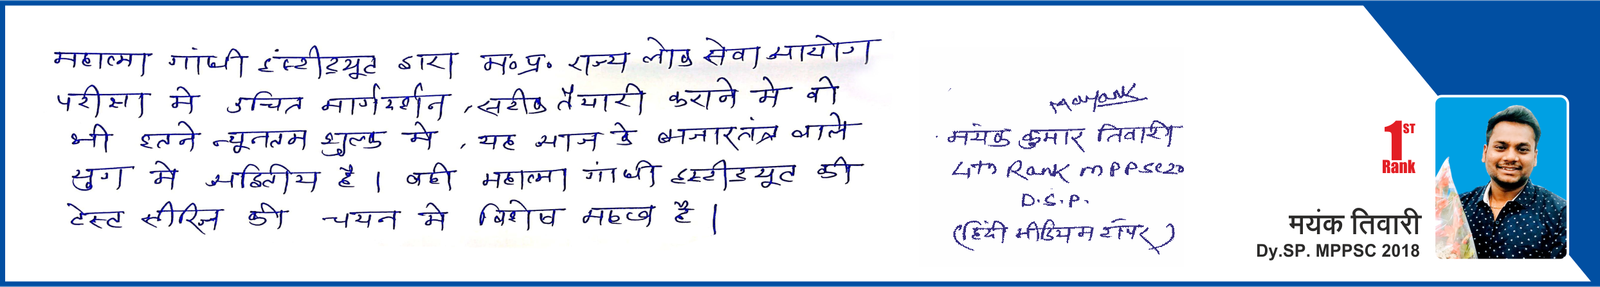 महात्मा गांधी इंस्टीड्यूट द्वारा म॰प्र॰ राज्य लोक सेवा आयोग
परीक्षा मे उचित मार्गदर्शन, सटीक तैयारी कराने मे वो
भी इतने न्यूनतम शुल्क मे, यह आज के बाजारतंत्र वाले
युग मे अद्वितीय है। वही महात्मा गांधी इंस्टीड्यूट की
टेस्ट सीरिज की चयन मे विशेष महत्व है।
Mayank
मयंक कुमार तिवारी
4th Rank MPPSC20
D.S.P.
(हिंदी मीडियम टॉपर)
1ST
Rank
मयंक तिवारी
Dy.SP. MPPSC 2018